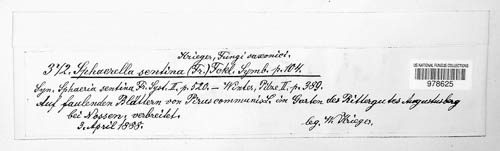 Krieger, Fungi saxonici.
342. Sphaerella sentina (Fr.) Fckl. Symb. p. 104.
Syn. Sphaeria sentina Fr. Syst. II. p. 520. – Winter, Pilze II. p. 389.
Auf faulenden Blättern von Pirus communis L. im Garten des Rittergutes Augustusberg
bei Nossen, verbreitet.
3. April 1888.
leg. W. Krieger.
US NATIONAL FUNGUS COLLECTIONS
978625